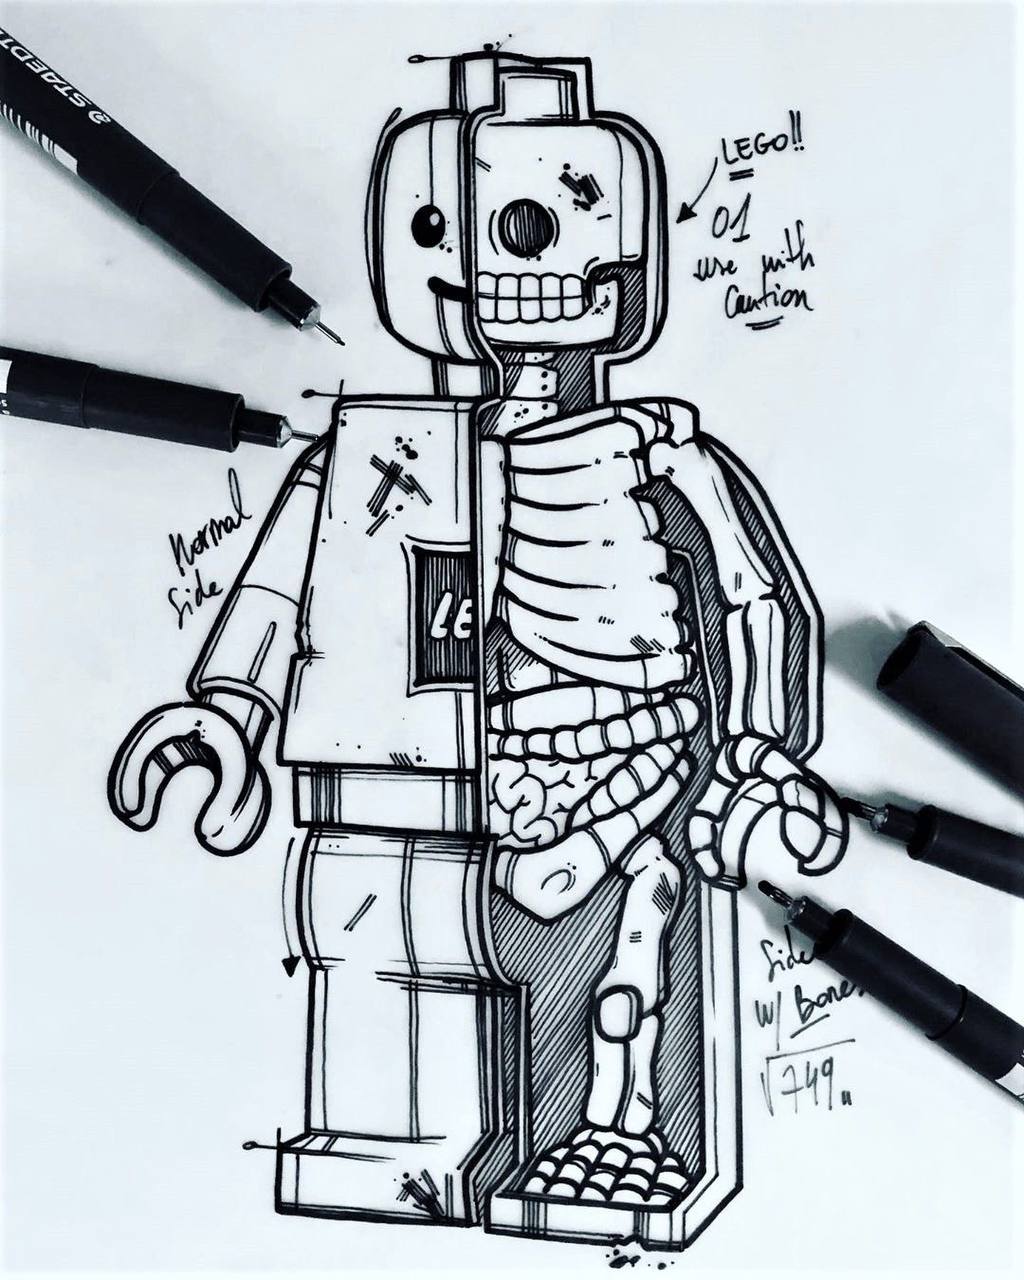 STAEDT
LEGO!!
01
use with
Caution
Normal
Side
LE
Side
W/ Bones
√749"